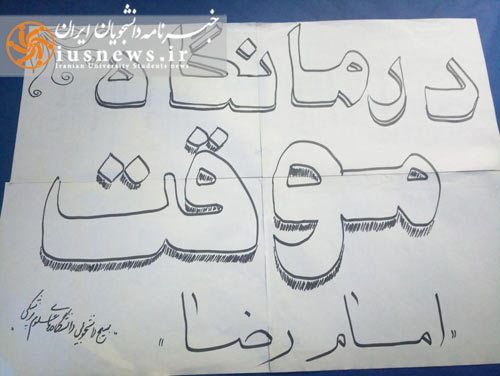 خبرنامه دانشجویان ایران
iusnews.ir
Iranian University Students news
درمانگاه
موقت
"امام رضا"
بسیج دانشجویی دانشگاه علوم پزشکی